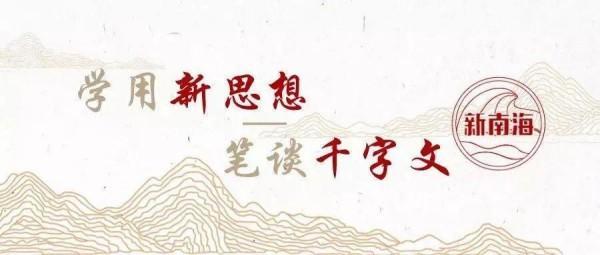 学用新思想
笔谈千字文
新南海